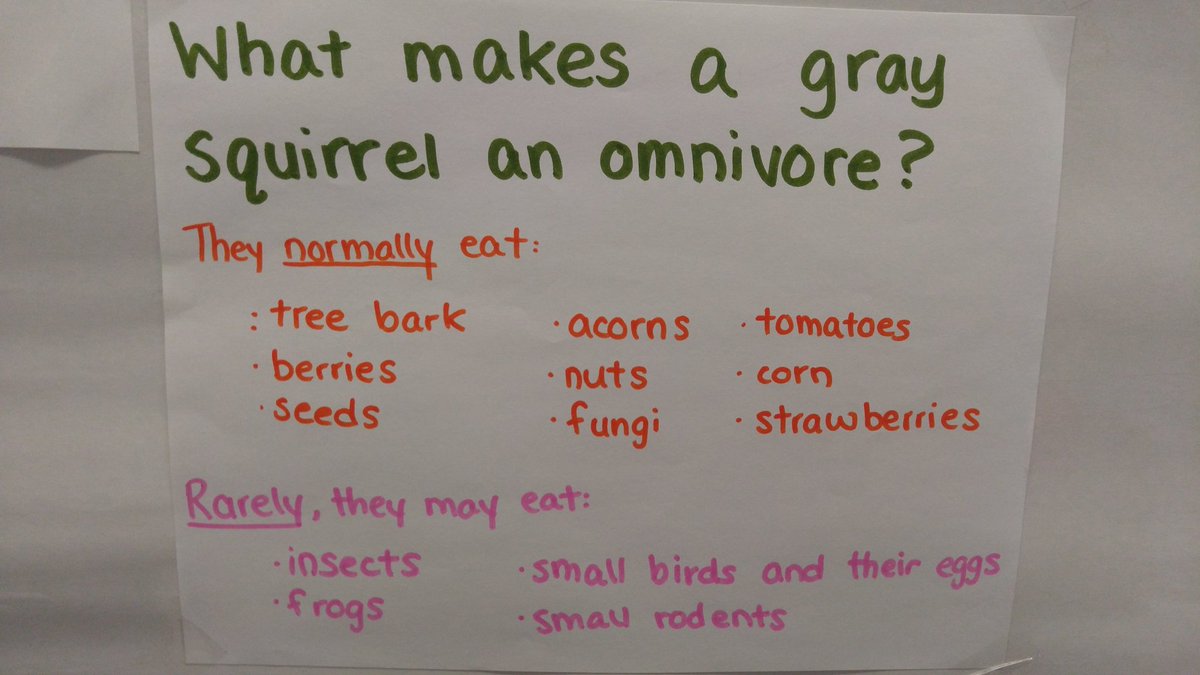 What makes a gray
squirrel an omnivore?
They normally eat:
: tree bark · acorns · tomatoes
· berries · nuts · corn
· seeds · fungi · strawberries
Rarely, they may eat:
· insects · small birds and their eggs
· frogs · small rodents